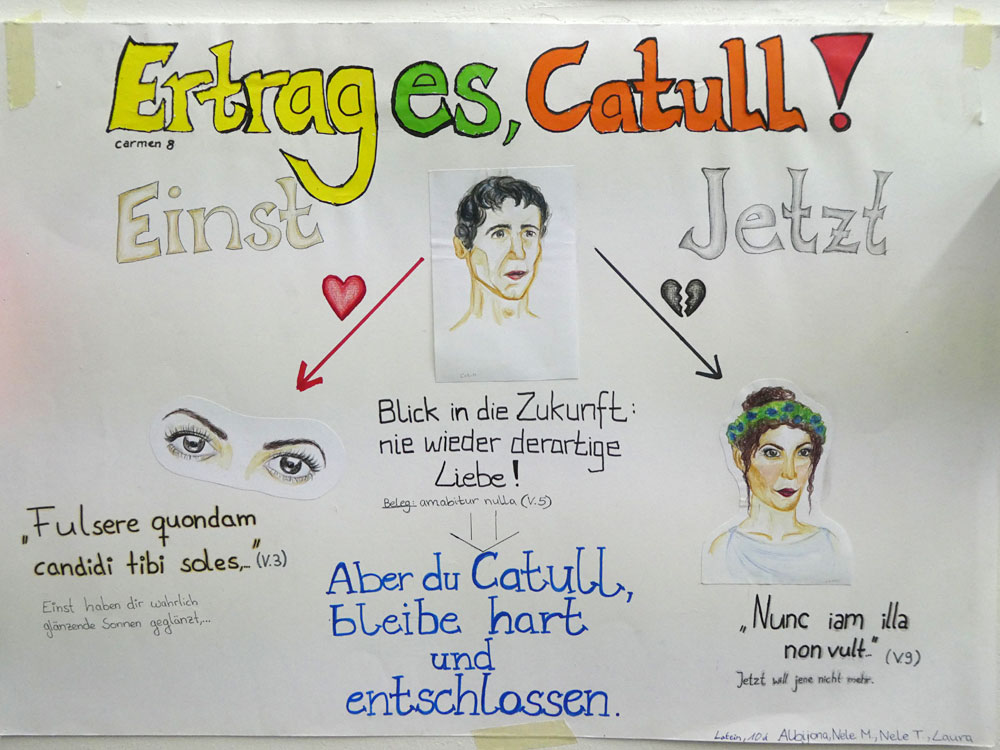 Ertrag es, Catull!
Carmen 8
Einst
Jetzt
Blick in die Zukunft:
nie wieder derartige
Liebe!
Beleg: amabitur nulla (V.5)
„Fulsere quondam
candidi tibi soles,..." (V.3)
Einst haben dir wahrlich
glänzende Sonnen geglänzt,...
Aber du Catull,
bleibe hart
und
entschlossen.
„Nunc iam illa
non vult..." (V.9)
Jetzt will jene nicht mehr.
Latein, 10d Albijona, Nele M., Nele T., Laura